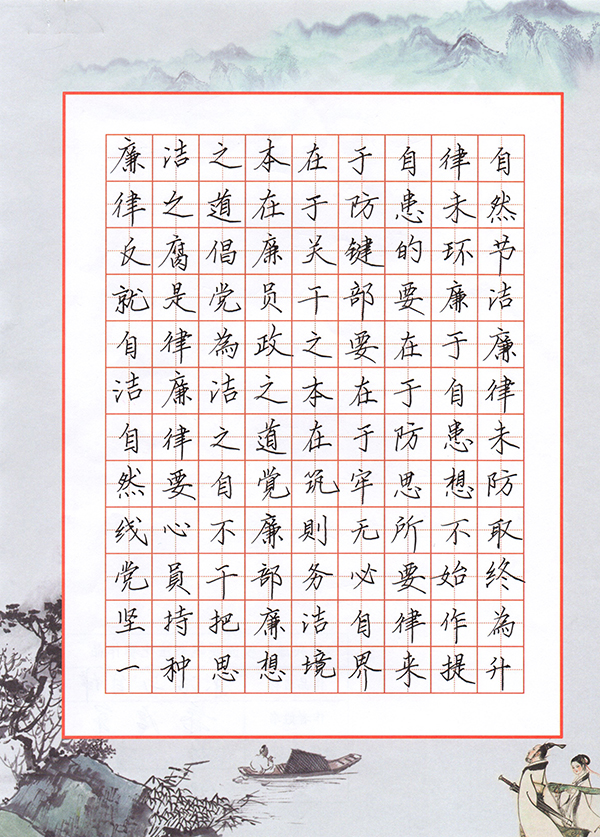 廉洁之本在于自律自
律之道在于防患未然
反腐倡廉关键的环节
就是党员干部要廉洁
自律為政之要在于廉
洁廉洁之本在于自律
自律之道在于防患未
然要自觉筑牢思想防
线心不廉則无所不取
党員干部务必要始终
坚持把廉洁自律作為
一种思想境界来提升